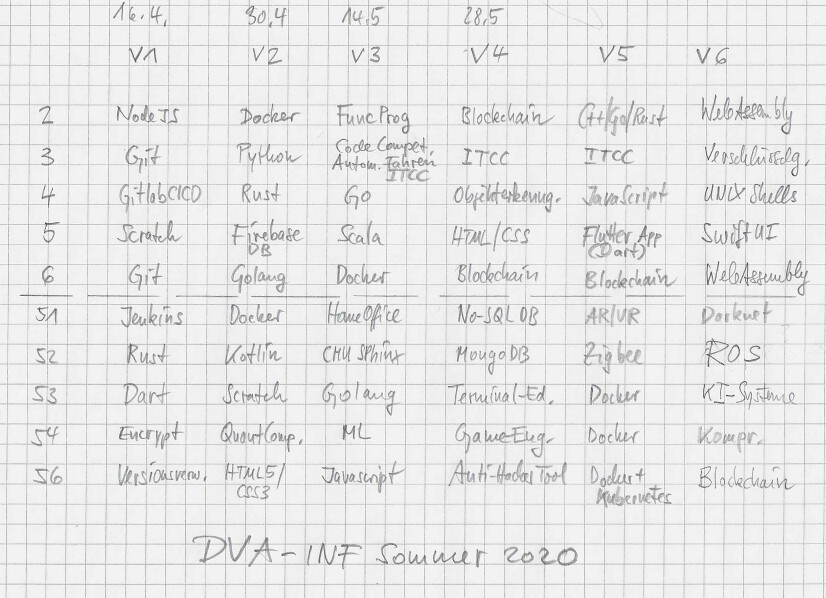 16.4. 30.4 14.5 28.5
V1 V2 V3 V4 V5 V6
2 NodeJS Docker FuncProg Blockchain C++/Go/Rust WebAssembly
3 Git Python Code Compet. Autom. Fahren ITCC ITCC ITCC Verschlüsslg.
4 GitlabCICD Rust Go Objekterkenng. JavaScript UNIX Shells
5 Scratch Firebase DB Scala HTML/CSS Flutter App (Dart) SwiftUI
6 Git Golang Docker Blockchain Blockchain WebAssembly
51 Jenkins Docker HomeOffice No-SQL DB AR/VR Darknet
52 Rust Kotlin CMU Sphinx MongoDB Zigbee ROS
53 Dart Scratch Golang Terminal-Ed. Docker KI-Systeme
54 Encrypt QuantComp. ML GameEng. Docker Kompr.
56 Versionsverw. HTML5/CSS3 Javascript Anti-Hacker Tool Docker+Kubernetes Blockchain
DVA-INF Sommer 2020